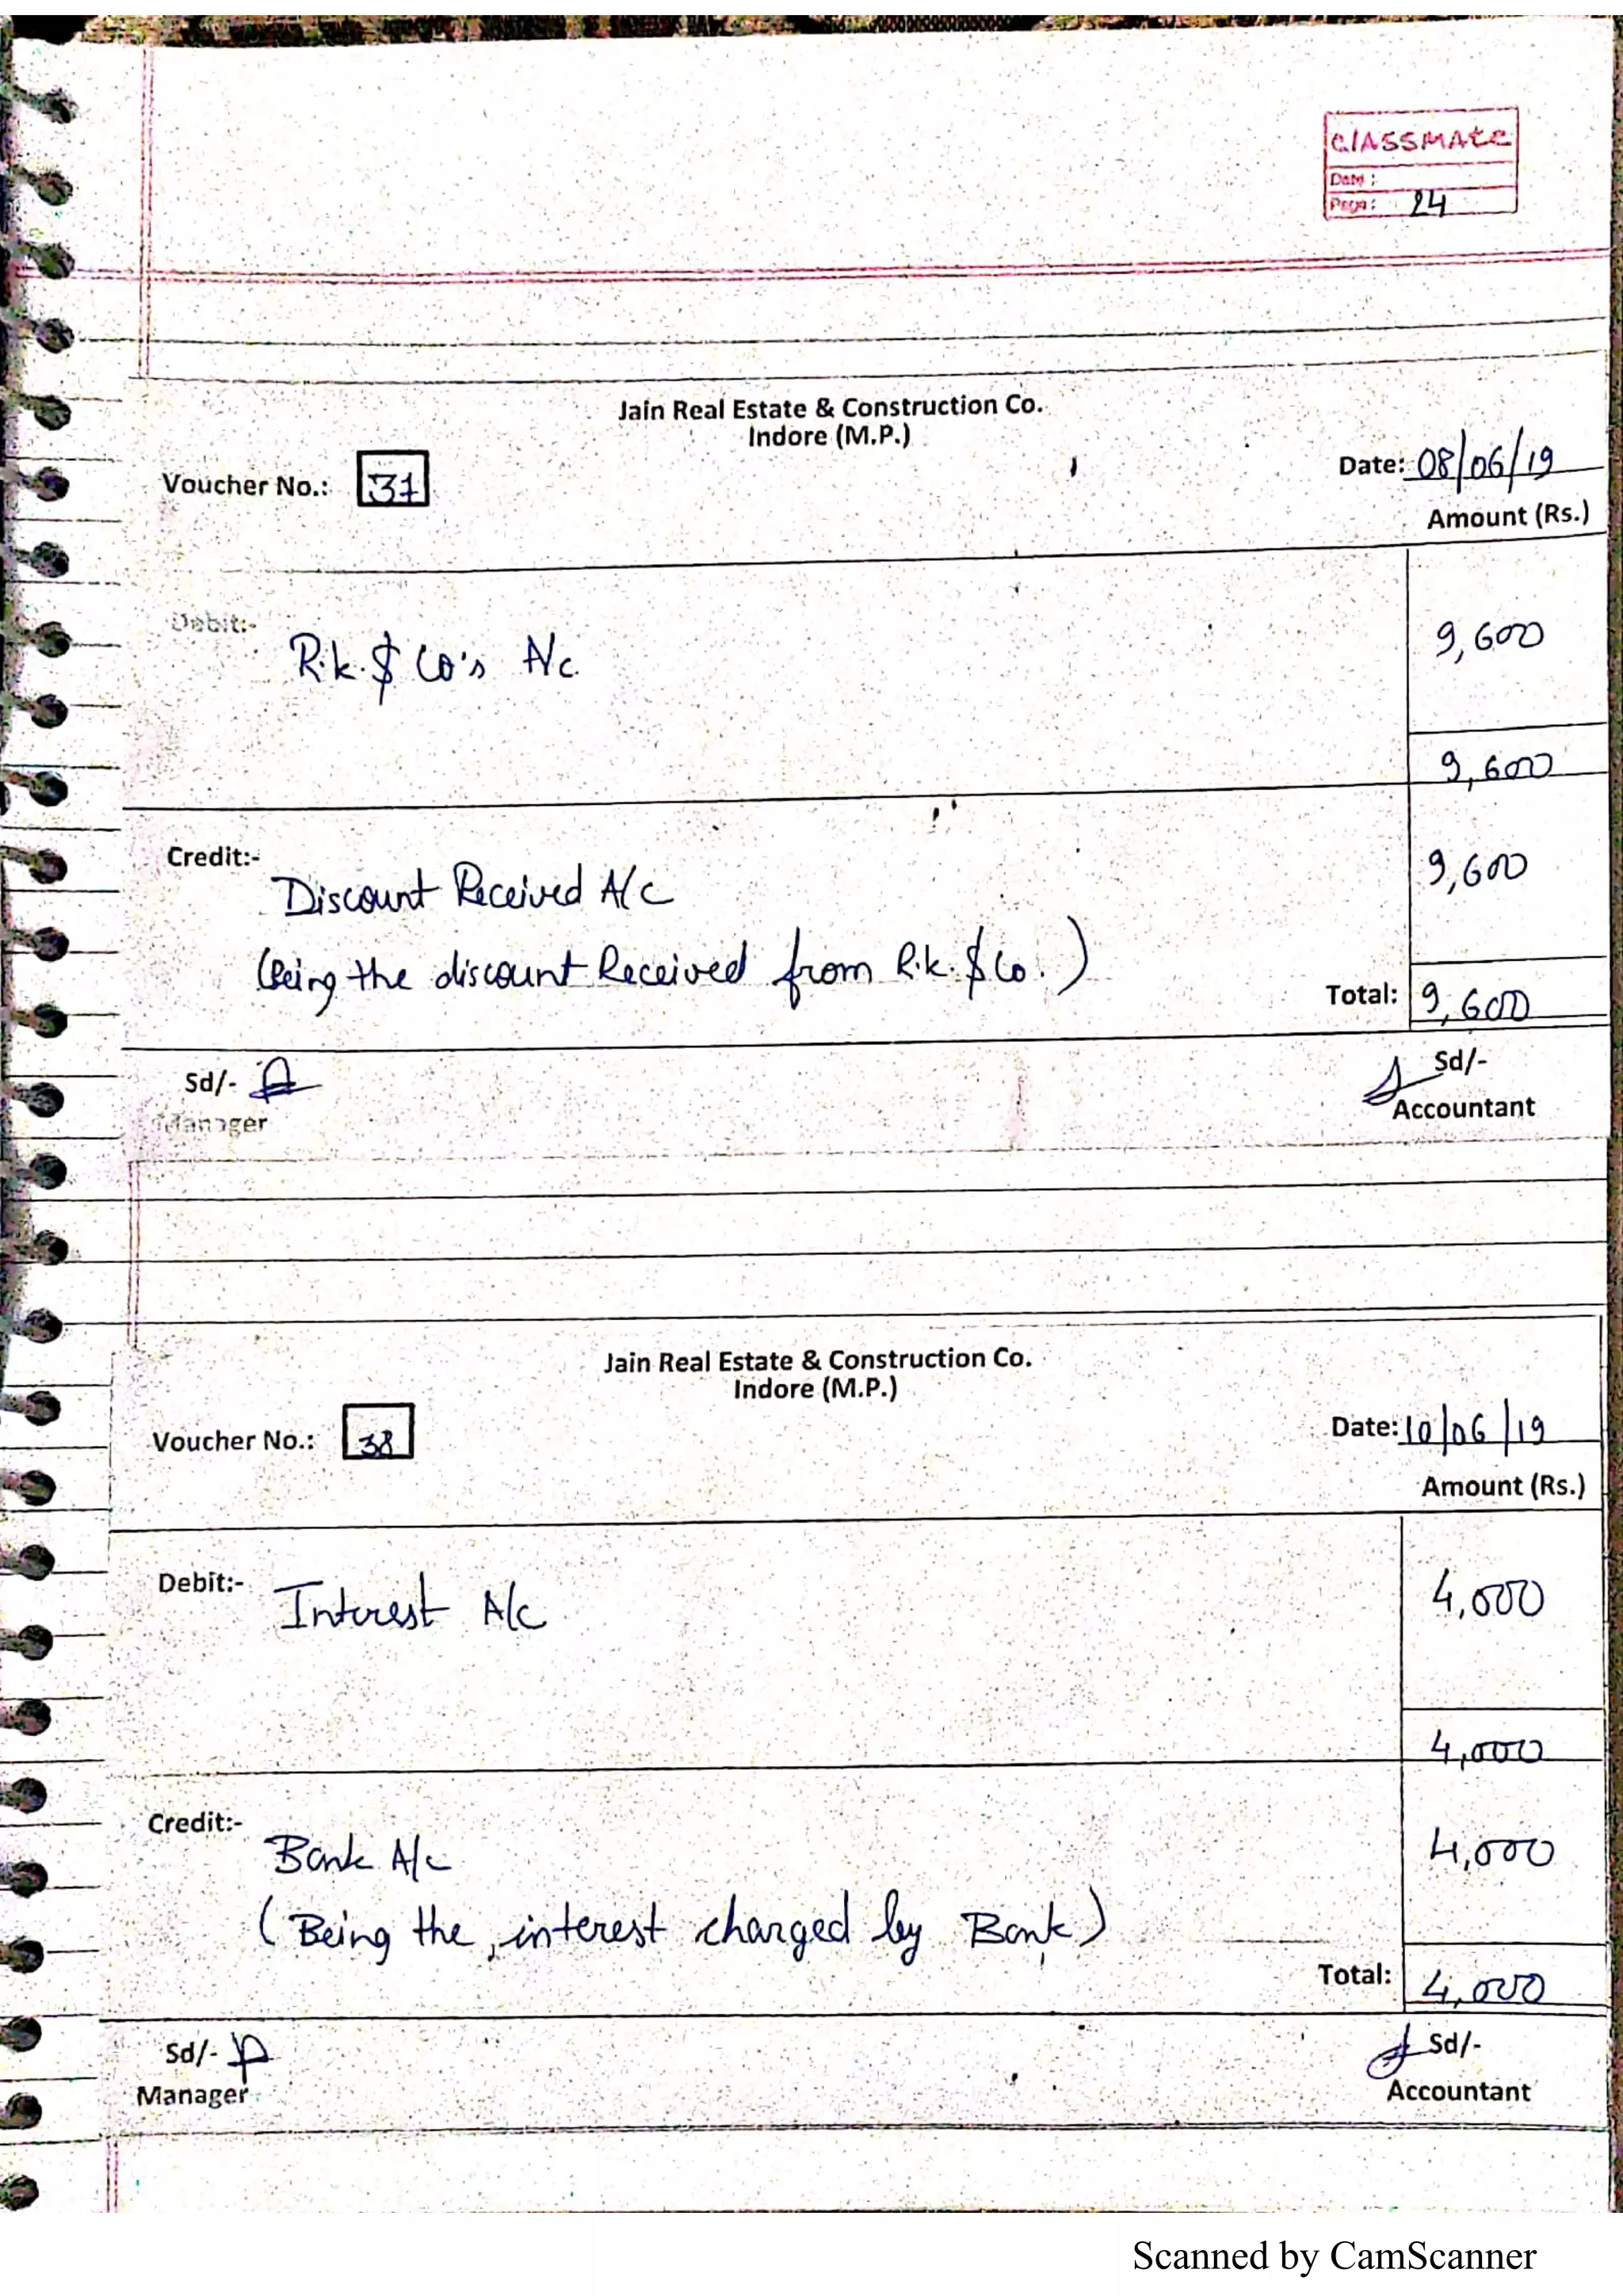 classmate
Date :
Page : 24
Jain Real Estate & Construction Co.
Indore (M.P.)
Voucher No.: 37
Date: 08/06/19
Amount (Rs.)
Debit:-
R.k. $ Co's A/c. 9,600
9,600
Credit:-
Discount Received A/c 9,600
(Being the discount Received from R.k. $ Co.)
Total: 9,600
Sd/- Sd/-
Manager Accountant
Jain Real Estate & Construction Co.
Indore (M.P.)
Voucher No.: 38
Date: 10/06/19
Amount (Rs.)
Debit:- Interest A/c 4,000
4,000
Credit:-
Bank A/c 4,000
(Being the interest charged by Bank)
Total: 4,000
Sd/- Sd/-
Manager Accountant
Scanned by CamScanner